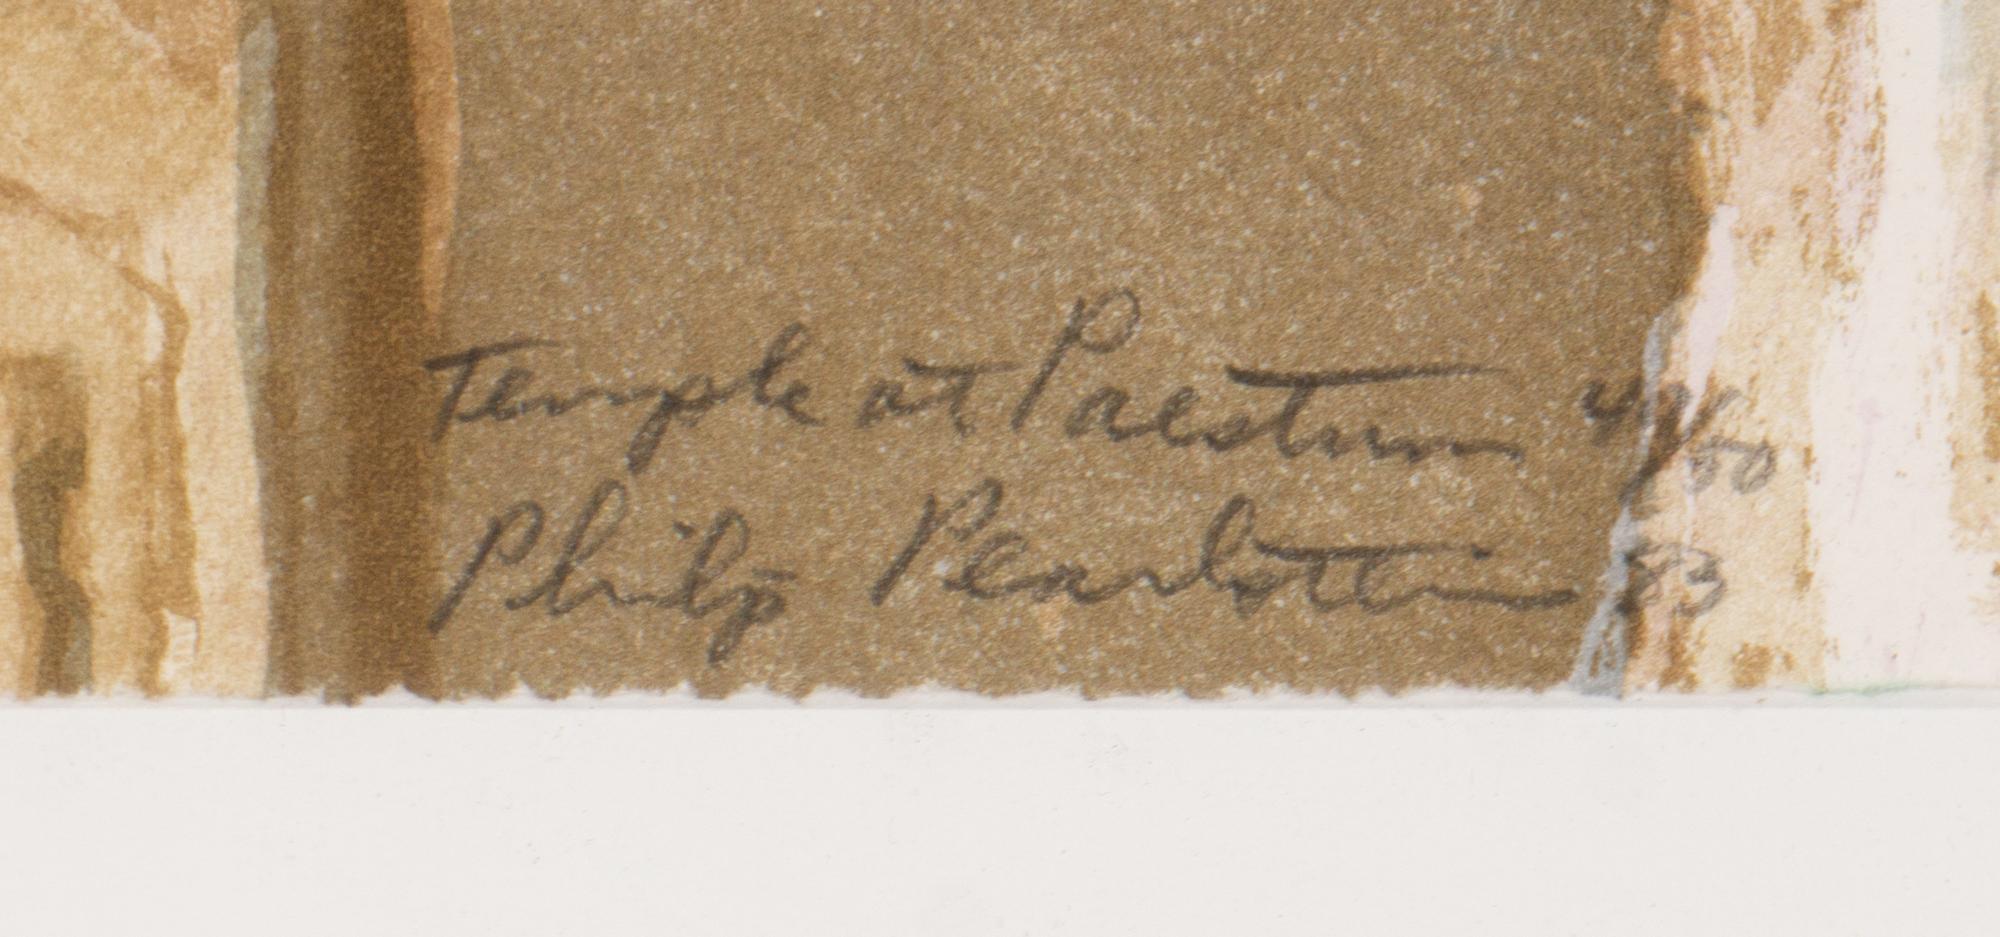 Temple at Paestum /50
Philip Pearlstein 83